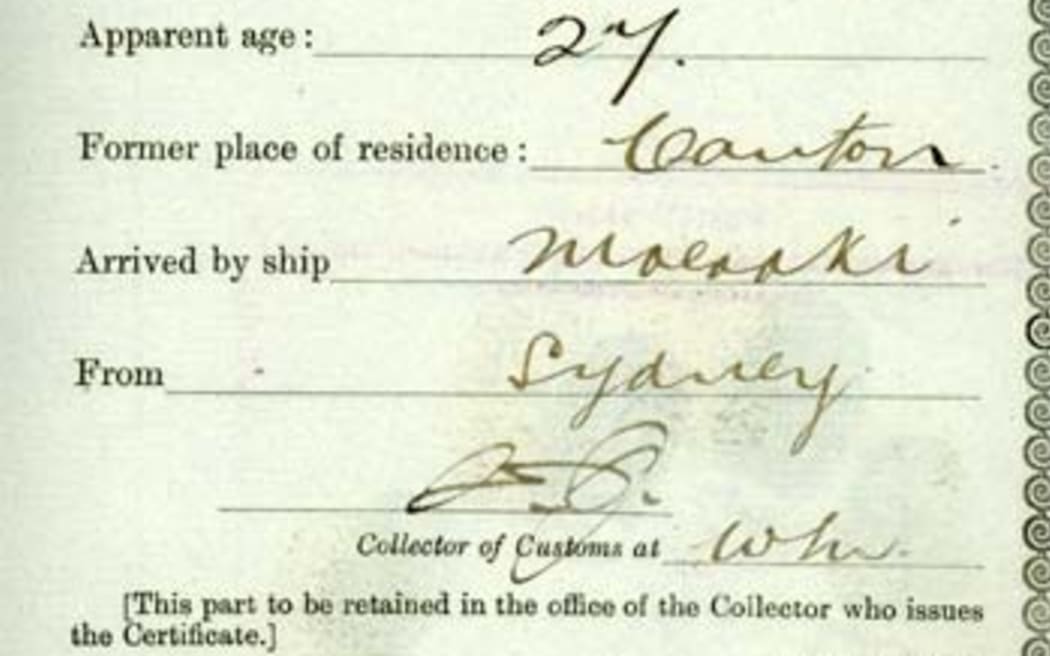 Apparent age: 27.
Former place of residence: Canton
Arrived by ship Moeraki
From Sydney
Collector of Customs at
[This part to be retained in the office of the Collector who issues
the Certificate.]